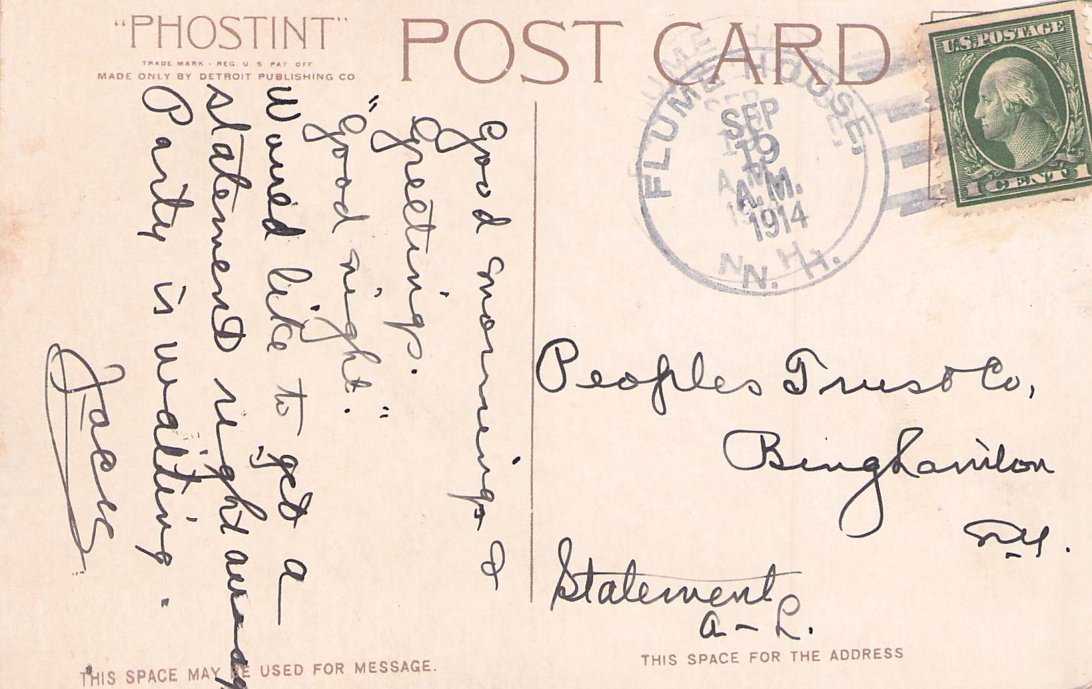 "PHOSTINT"
TRADE MARK - REG. U S PAT OFF
MADE ONLY BY DETROIT PUBLISHING CO
POST CARD
FLUME HOUSE,
SEP
19
A.M.
1914
N. H.
U.S. POSTAGE
1 CENT 1
Good mornings &
Greetings.
"Good night."
Would like to get a
statement right away
Party is waiting.
Peoples Trust Co,
Binghamton
N.Y.
Statement
A-L.
THIS SPACE MAY BE USED FOR MESSAGE.
THIS SPACE FOR THE ADDRESS